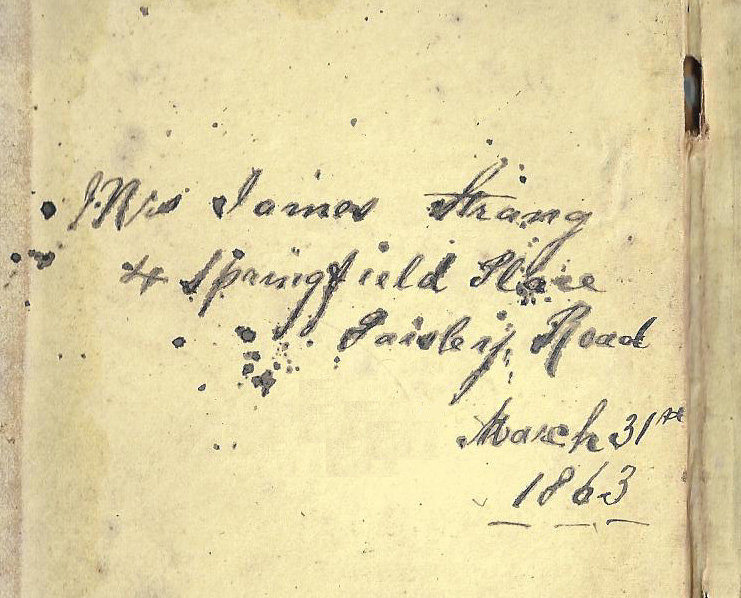 Mrs James Strang
4 Springfield Place
Paisley Road
March 31st
1863